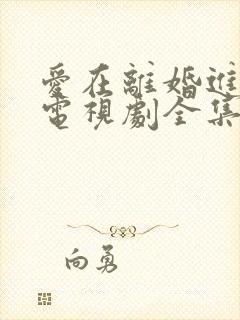 愛在離婚進
電視劇全集
向勇